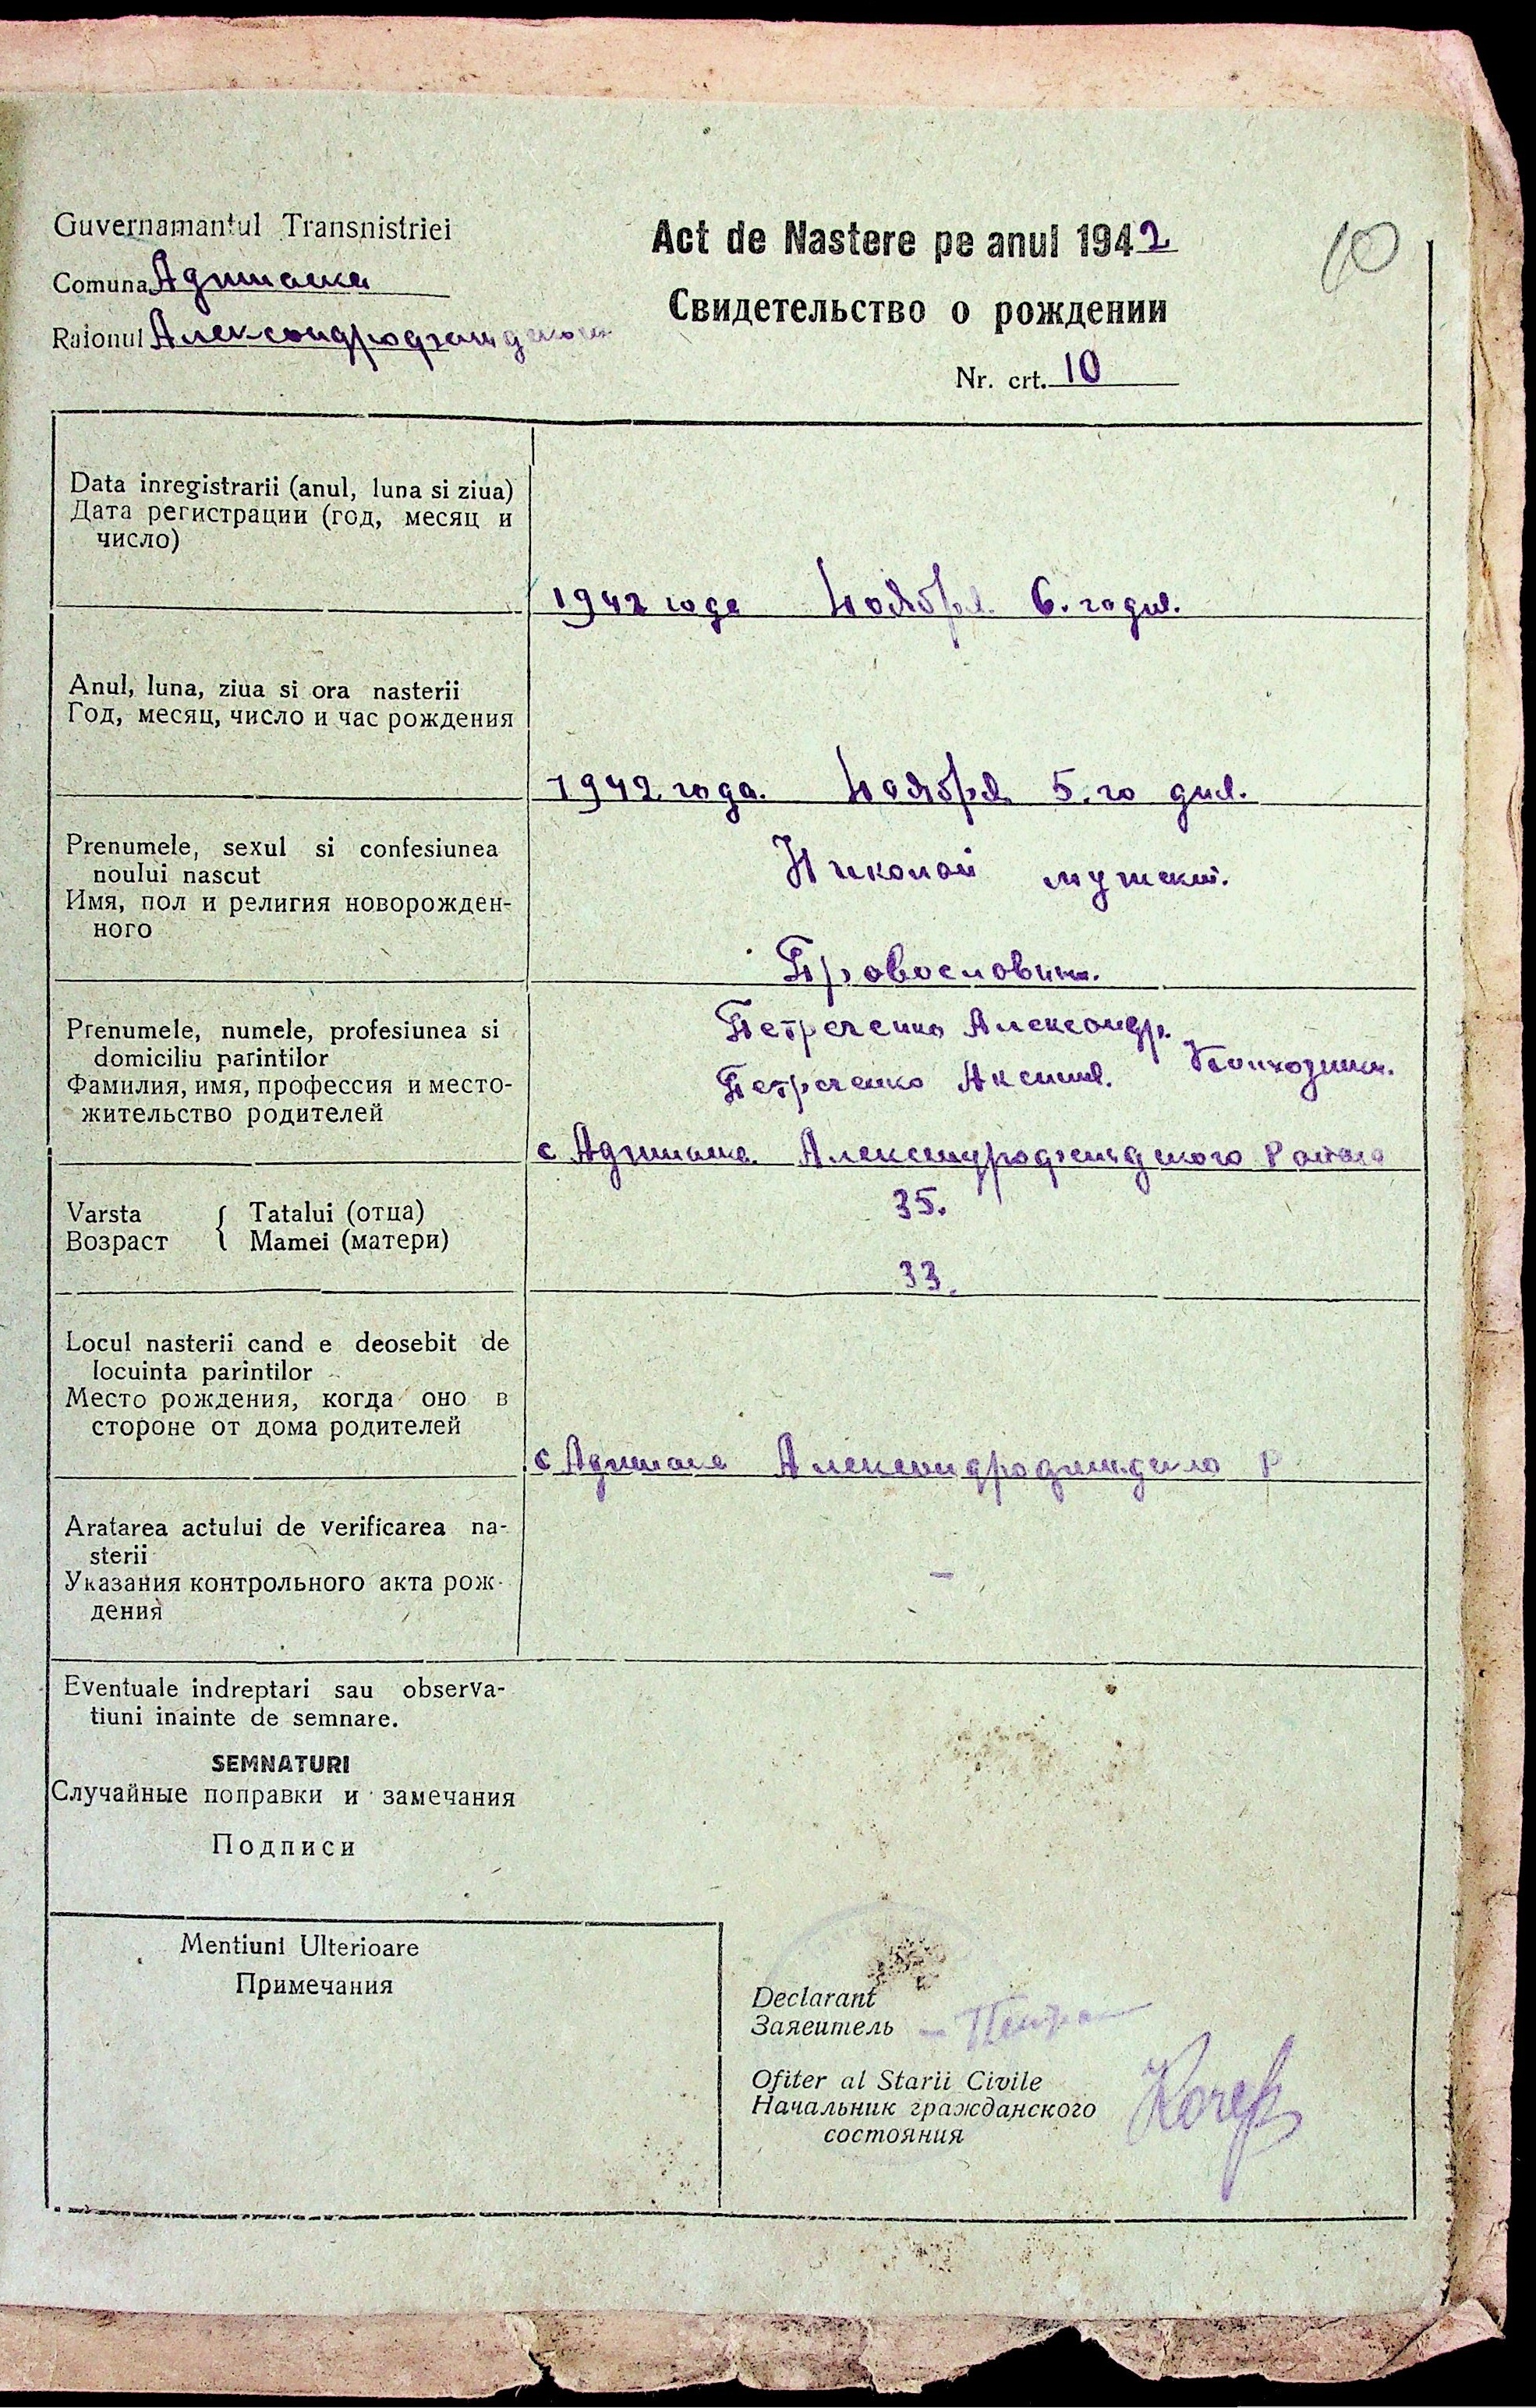 Guvernamantul Transnistriei
Act de Nastere pe anul 1942
10
Comuna
Свидетельство о рождении
Raionul
Nr. crt. 10
Data inregistrarii (anul, luna si ziua)
Дата регистрации (год, месяц и
число)
1942 года Ноября 6.
Anul, luna, ziua si ora nasterii
Год, месяц, число и час рождения
1942 года. Ноября 5.го дня.
Prenumele, sexul si confesiunea
noului nascut
Имя, пол и религия новорожден-
ного
Николай мужской.
Prenumele, numele, profesiunea si
domiciliu parintilor
Фамилия, имя, профессия и место-
жительство родителей
Петреченко Александр.
Петреченко
с
35.
Varsta { Tatalui (отца)
Возраст Mamei (матери)
33.
Locul nasterii cand e deosebit de
locuinta parintilor
Место рождения, когда оно в
стороне от дома родителей
с
Aratarea actului de verificarea na-
sterii
Указания контрольного акта рож-
дения
–
Eventuale indreptari sau observa-
tiuni inainte de semnare.
SEMNATURI
Случайные поправки и замечания
Подписи
Mentiuni Ulterioare
Примечания
Declarant
Заяеитель
Ofiter al Starii Civile
Начальник гражданского
состояния